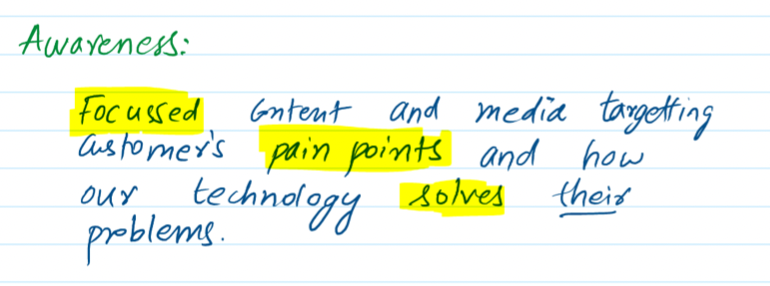 Awareness:
Focussed Content and media targetting
Customer's pain points and how
our technology solves their
problems.